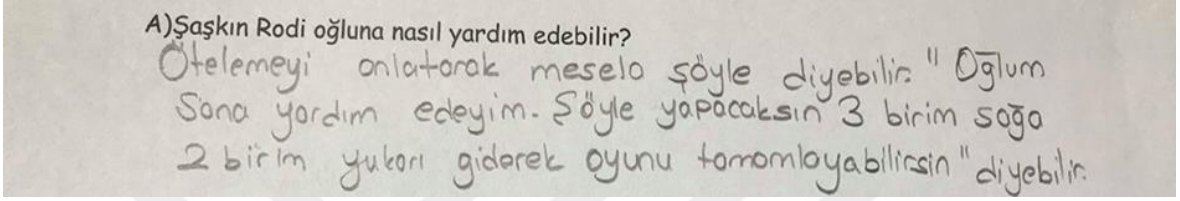 A)Şaşkın Rodi oğluna nasıl yardım edebilir?
Ötelemeyi anlatarak mesela şöyle diyebilir. "Oğlum
Sana yardım edeyim. Şöyle yapacaksın 3 birim sağa
2 birim yukarı giderek oyunu tamamlayabilirsin" diyebilir.